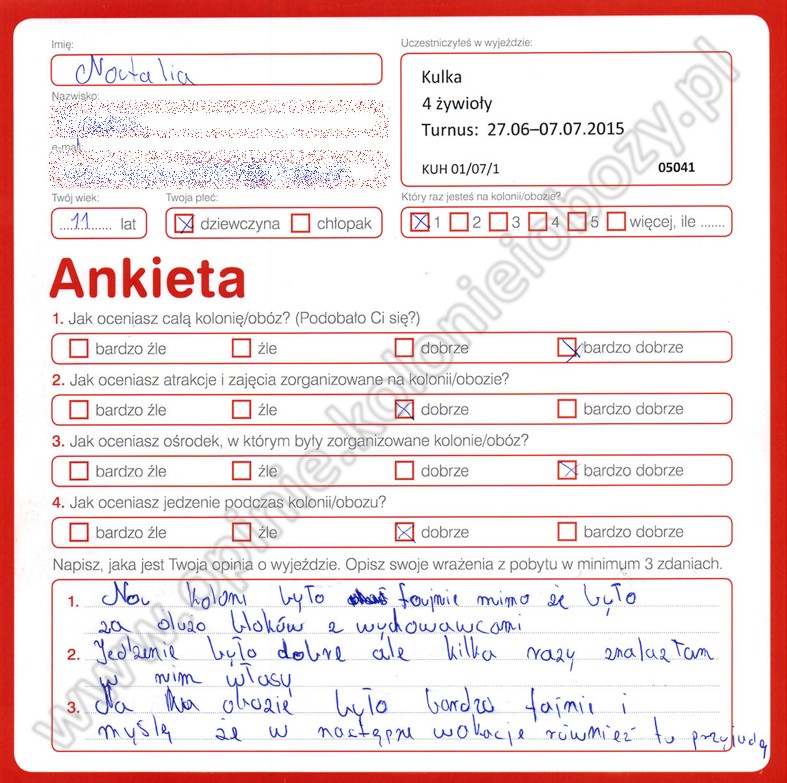 Imię:
Natalia
Nazwisko:
e-mail
Twój wiek:
11 lat
Twoja płeć:
dziewczyna chłopak
Uczestniczyłeś w wyjeździe:
Kulka
4 żywioły
Turnus: 27.06–07.07.2015
KUH 01/07/1 05041
Który raz jesteś na kolonii/obozie?
1 2 3 4 5 więcej, ile .......
Ankieta
1. Jak oceniasz całą kolonię/obóz? (Podobało Ci się?)
bardzo źle źle dobrze bardzo dobrze
2. Jak oceniasz atrakcje i zajęcia zorganizowane na kolonii/obozie?
bardzo źle źle dobrze bardzo dobrze
3. Jak oceniasz ośrodek, w którym były zorganizowane kolonie/obóz?
bardzo źle źle dobrze bardzo dobrze
4. Jak oceniasz jedzenie podczas kolonii/obozu?
bardzo źle źle dobrze bardzo dobrze
Napisz, jaka jest Twoja opinia o wyjeździe. Opisz swoje wrażenia z pobytu w minimum 3 zdaniach.
1. Na koloni było fajnie mimo że było
za dużo bloków z wychowawcami
2. Jedzenie było dobre ale kilka razy znalazłam
w nim włosy
3. Na obozie było bardzo fajnie i
myślę że w następne wakacje również tu przyjadę
www.opinie.kolonieiobozy.pl